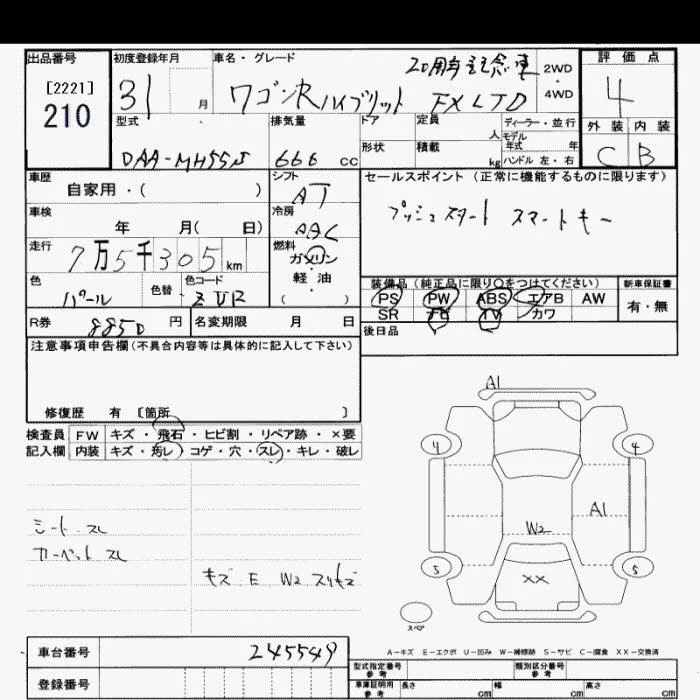 出品番号
[2221]
210
初度登録年月
31 月
車名・グレード
20周年記念車
ワゴンRハイブリット FX LTD
2WD
4WD
評価点
4
外装 内装
C B
型式
DAA-MH55S
排気量
666 cc
ドア
形状
定員 人
積載 kg
ディーラー・並行
モデル
年式 年
ハンドル 左・右
車歴
自家用・( )
シフト
AT
セールスポイント(正常に機能するものに限ります)
プッシュスタート スマートキー
車検
年 月( 日)
冷房
AAC
走行
7万5千305 km
燃料
ガソリン
軽・油
( )
色
パール
色替
色コード
ZVR
装備品(純正品に限り○をつけてください)
PS PW ABS エアB AW
SR TV カワ
新車保証書
有・無
R券
8850 円
名変期限 月 日
後日品
注意事項申告欄(不具合内容等は具体的に記入して下さい)
修復歴 有 [箇所 ]
検査員 FW キズ・飛石・ヒビ割・リペア跡・×要
記入欄 内装 キズ・汚レ・コゲ・穴・スレ・キレ・破レ
A1
4 4
A1
W2
5 5
XX
スペア
シート スレ
カーペット スレ
キズ E W2 スリキズ
A-キズ E-エクボ U-凹み W-補修跡 S-サビ C-腐食 XX-交換済
車台番号 245549
登録番号
型式指定番号
参考
類別区分番号
参考
車庫証明用
参考
長さ cm 幅 cm 高さ cm